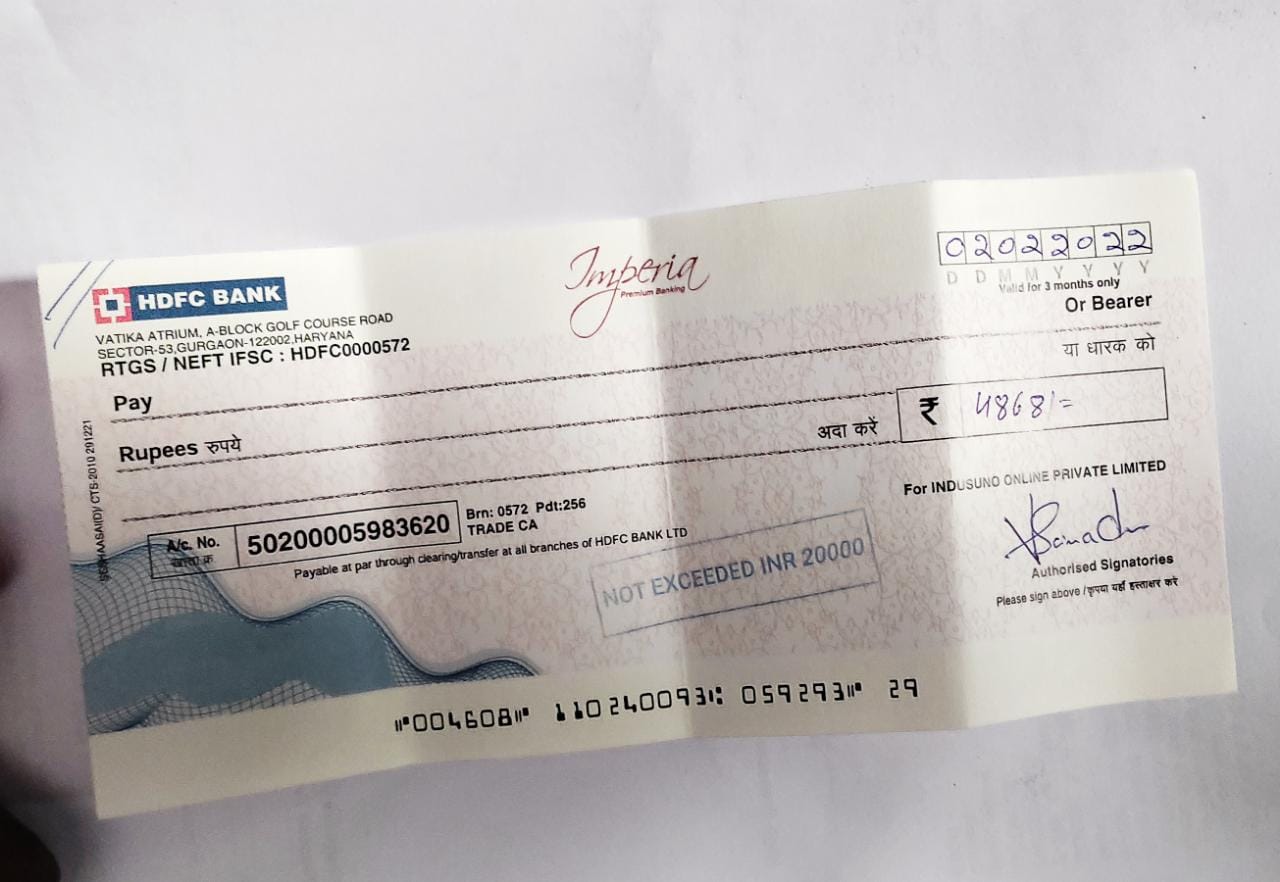 HDFC BANK
VATIKA ATRIUM, A-BLOCK GOLF COURSE ROAD
SECTOR-53,GURGAON-122002,HARYANA
RTGS / NEFT IFSC : HDFC0000572
Imperia
Premium Banking
02022022
D D M M Y Y Y Y
Valid for 3 months only
Or Bearer
या धारक को
Pay
Rupees रुपये
अदा करें
₹ 4868/=
A/c. No.
खाता क्र.
50200005983620
Brn: 0572 Pdt:256
TRADE CA
Payable at par through clearing/transfer at all branches of HDFC BANK LTD
NOT EXCEEDED INR 20000
For INDUSUNO ONLINE PRIVATE LIMITED
Authorised Signatories
Please sign above /कृपया यहाँ हस्ताक्षर करे
CTS-2010 291221
⑈004608⑈ 110240093⑆ 059293⑈ 29